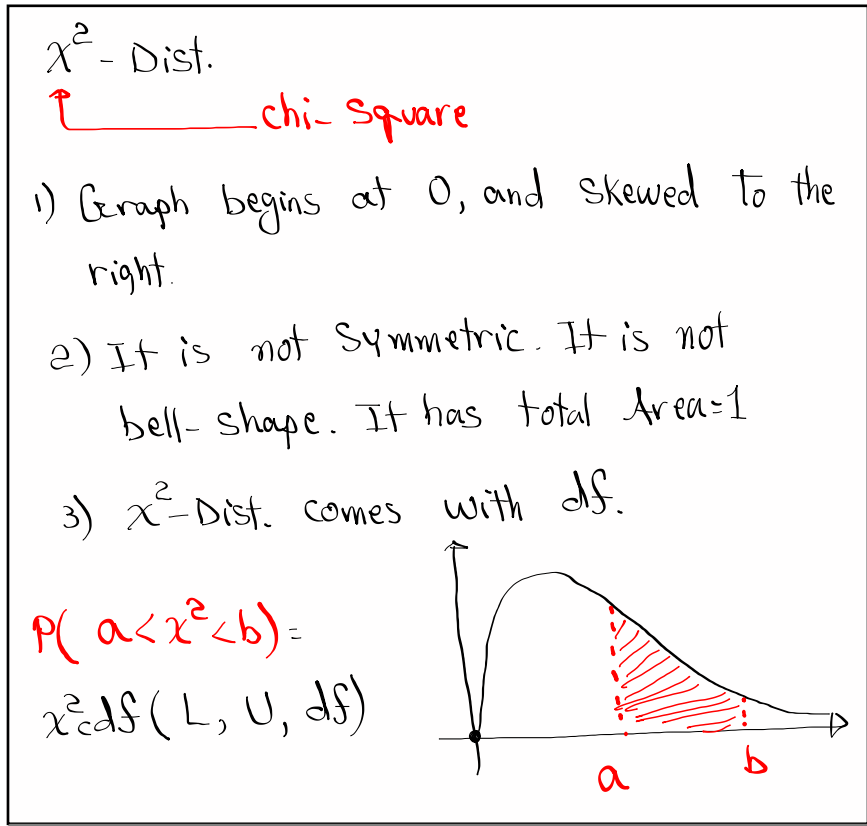 χ² - Dist.
chi- Square
1) Graph begins at 0, and skewed to the
right.
2) It is not Symmetric. It is not
bell- shape. It has total Area=1
3) χ²-Dist. comes with df.
P( a<χ²<b) =
χ²cdf( L, U, df)
a b